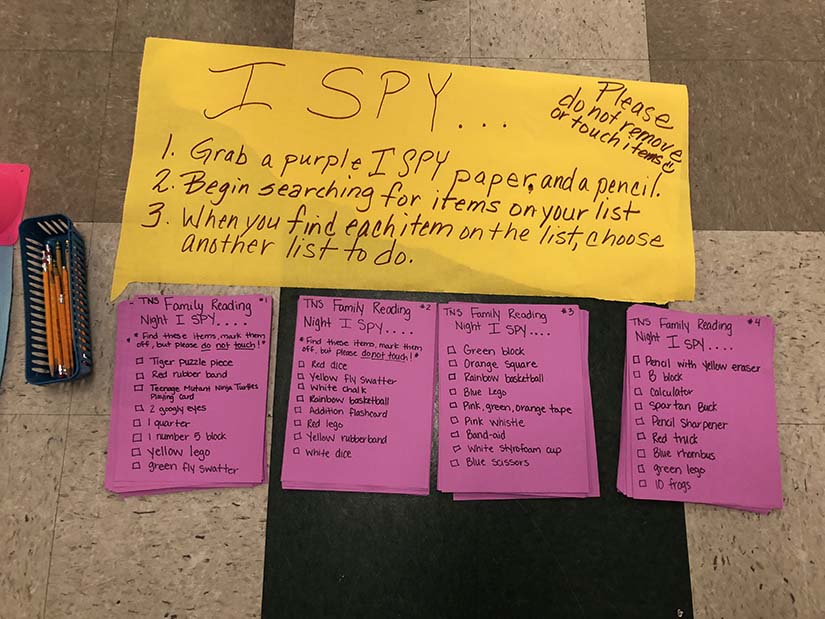 I SPY...
Please
do not remove
or touch items
1. Grab a purple I SPY paper, and a pencil.
2. Begin searching for items on your list
3. When you find each item on the list, choose
another list to do.
TNS Family Reading #1
Night I SPY....
* Find these items, mark them
off, but please do not touch! *
Tiger puzzle piece
Red rubber band
Teenage Mutant Ninja Turtles
Playing card
2 googly eyes
1 quarter
1 number 5 block
yellow lego
green fly swatter
TNS Family Reading #2
Night I SPY....
* Find these items, mark them
off, but please do not touch! *
Red dice
Yellow fly swatter
White chalk
Rainbow basketball
Addition flashcard
Red lego
Yellow rubberband
White dice
TNS Family Reading #3
Night I SPY....
Green block
Orange square
Rainbow basketball
Blue Lego
Pink, green, orange tape
Pink whistle
Band-aid
White styrofoam cup
Blue scissors
TNS Family Reading #4
Night I SPY....
Pencil with yellow eraser
B block
Calculator
Spartan Buck
Pencil Sharpener
Red truck
Blue rhombus
green lego
10 frogs